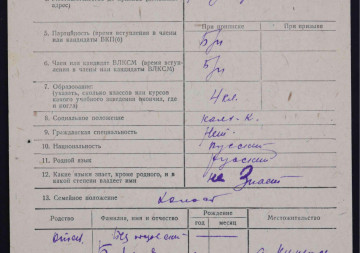 адрес)
При приписке При призыве
5. Партийность (время вступления в члены
или кандидаты ВКП(б) Б/п
6. Член или кандидат ВЛКСМ (время всту-
пления в члены или кандидаты ВЛКСМ) Б/п
7. Образование:
(указать, сколько классов или курсов
какого учебного заведения окончил, где
и когда) 4 кл.
8. Социальное положение колх-к.
9. Гражданская специальность Нет
10. Национальность Русский
11. Родной язык Русский
12. Какие языки знает, кроме родного, и в
какой степени владеет ими не знает
13. Семейное положение Холост
Родство Фамилия, имя и отчество Рождение Местожительство
год месяц